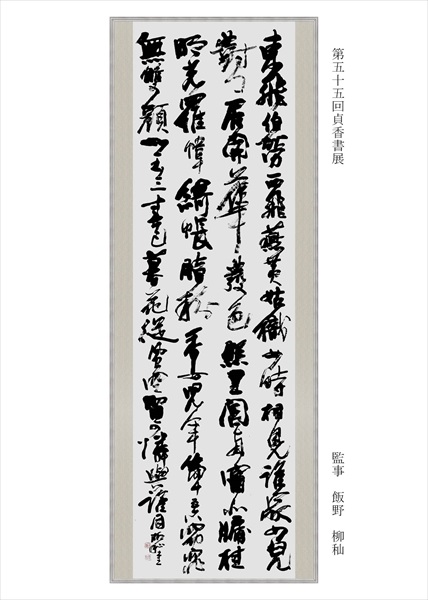 第五十五回貞香書展
監事 飯野 柳秞
東飛伯勞西飛燕黄姑織女時相見誰家女兒
對門居開華發色照里閭南窗北牖挂
明光羅幃綺帳脂粉香女兒年幾十五六窈窕
無雙顔如玉三春已暮花從風空留可憐與誰同